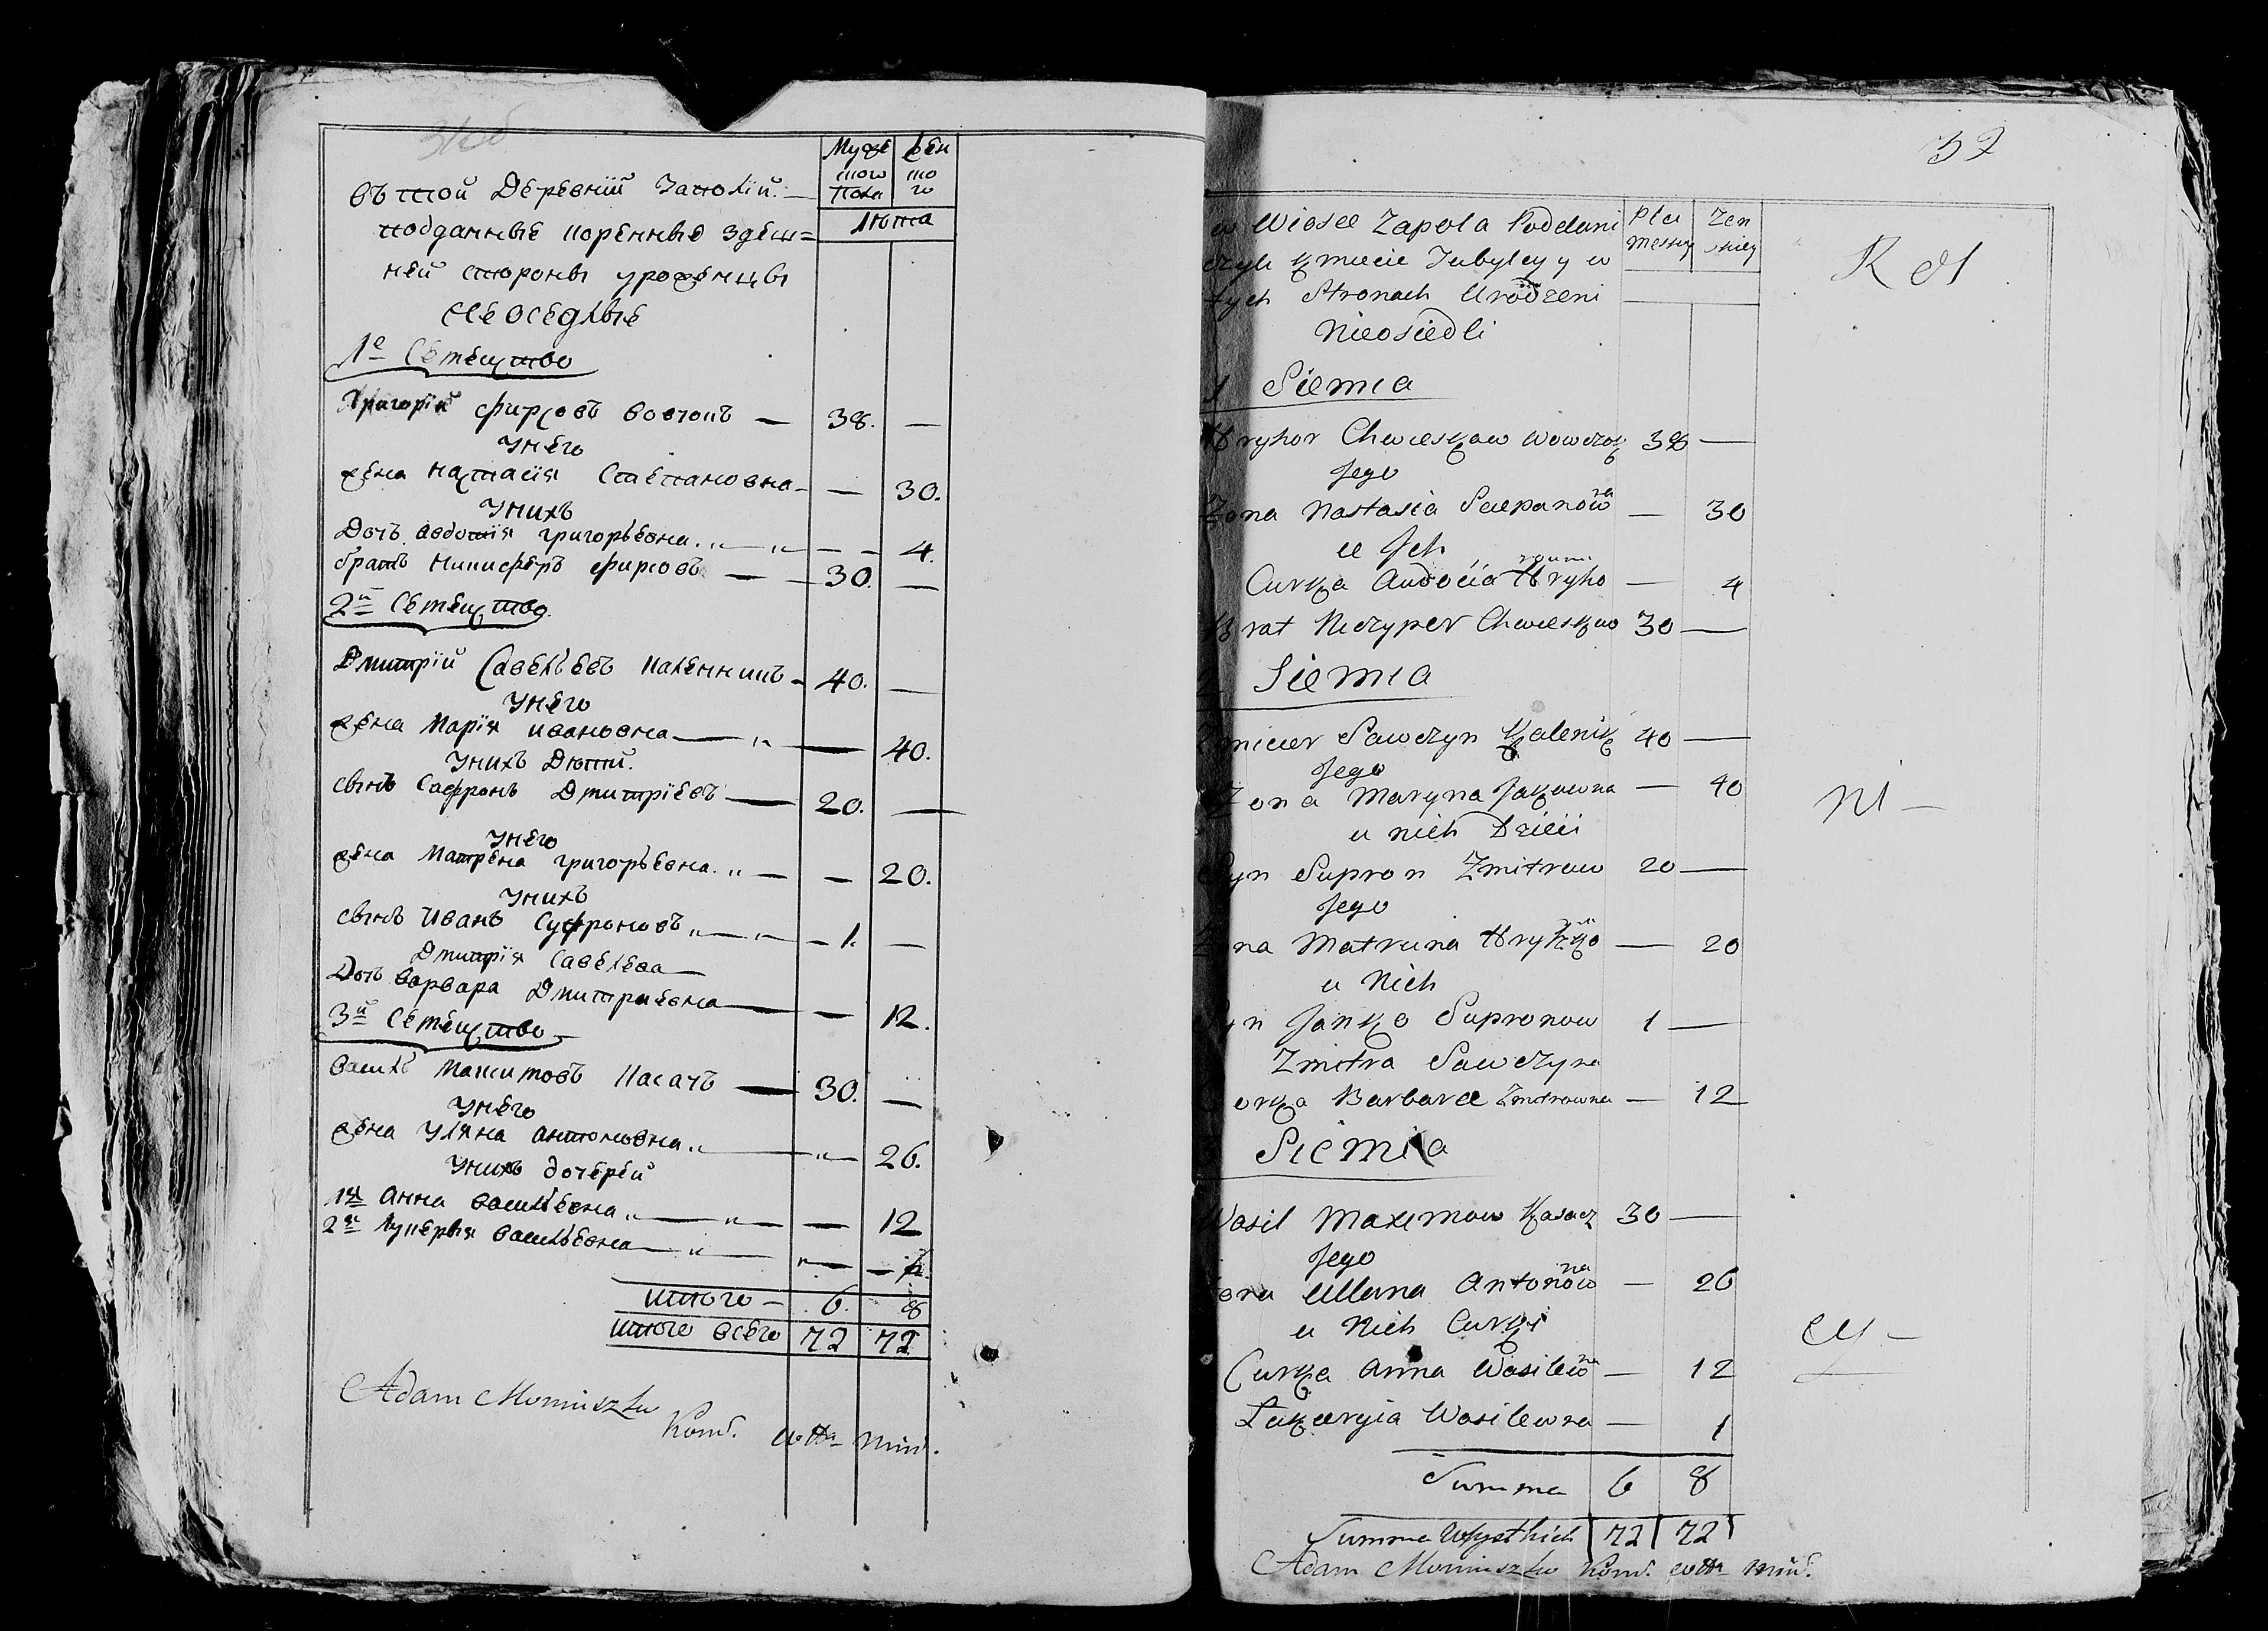 31об
Муже
ского
Пола
жен
ско
го
въ той Деревнѣй Заполiй. —
Лѣта
подданные коренные здеш=
ней стороны уроженцы
не оседлые
1е Семейство
Григорiй Фирсовъ Вовчокъ — 38. —
У него
жена Настасiя Степановна — — 30.
У нихъ
Дочь Авдотiя Григорьевна. „ — „ — — 4.
братъ Никиферъ Фирсовъ — — 30. —
2й Семейство
Дмитрiй Савельевъ Каленникъ — 40. —
У него
жена Марiя Ивановна — „ — 40.
У нихъ Дѣти.
сынъ Сафронъ Дмитрiевъ — 20. —
У него
жена Матрена Григорьевна. „ — — 20.
У нихъ
сынъ Иванъ Суфроновъ „ — „ — 1. —
Дмитрiя Савельева —
Дочь Варвара Дмитриевна — — 12.
3й Семейство —
Василь Максимовъ Касачъ — 30. —
У него
жена Уляна Антоновна „ — „ — 26.
У нихъ дочерей
1я Анна Васильевна „ — „ — — 12
2я Лукерья Васильевна — „ — „ — —
итого — 6. 8
итого всего 72 72
Adam Moniuszko
Kom. Wttu Miń.
32
w Wiosce Zapola Poddani
Płci
Meskiey
Zen
skiey
czyli Kmiecie Tubylcy y w
R M
tych Stronach Urodzeni
Nieosiedli
1 Siemia
Hryhor Chwieskow Wowczok 38 —
Jego
Zona Nastasia Sciepanowna — 30
u Ich
Curka Audocia Hryho — 4
Brat Niczyper Chwieskow 30 —
Siemia
Zmicier Sawczyn Kalenik 40 —
Jego
Zona Maryna Jakowna — 40
u nich Dzieci
Syn Supron Zmitrow 20 —
Jego
Zona Matruna — 20
u Nich
Syn Janko Supronow 1 —
Zmitra Sawczyna
Corka Barbara Zmitrowna — 12
Siemia
Wasil Maximow Kasacz 30 —
Jego
Zona Ullana Antonowna — 26
u Nich Curki
Curka Anna Wasilewna — 12
Łukieryia Wasilewna — 1
Summa 6 8
Summa Wszystkich 72 72
Adam Moniuszko Kom. Wttu Miń.